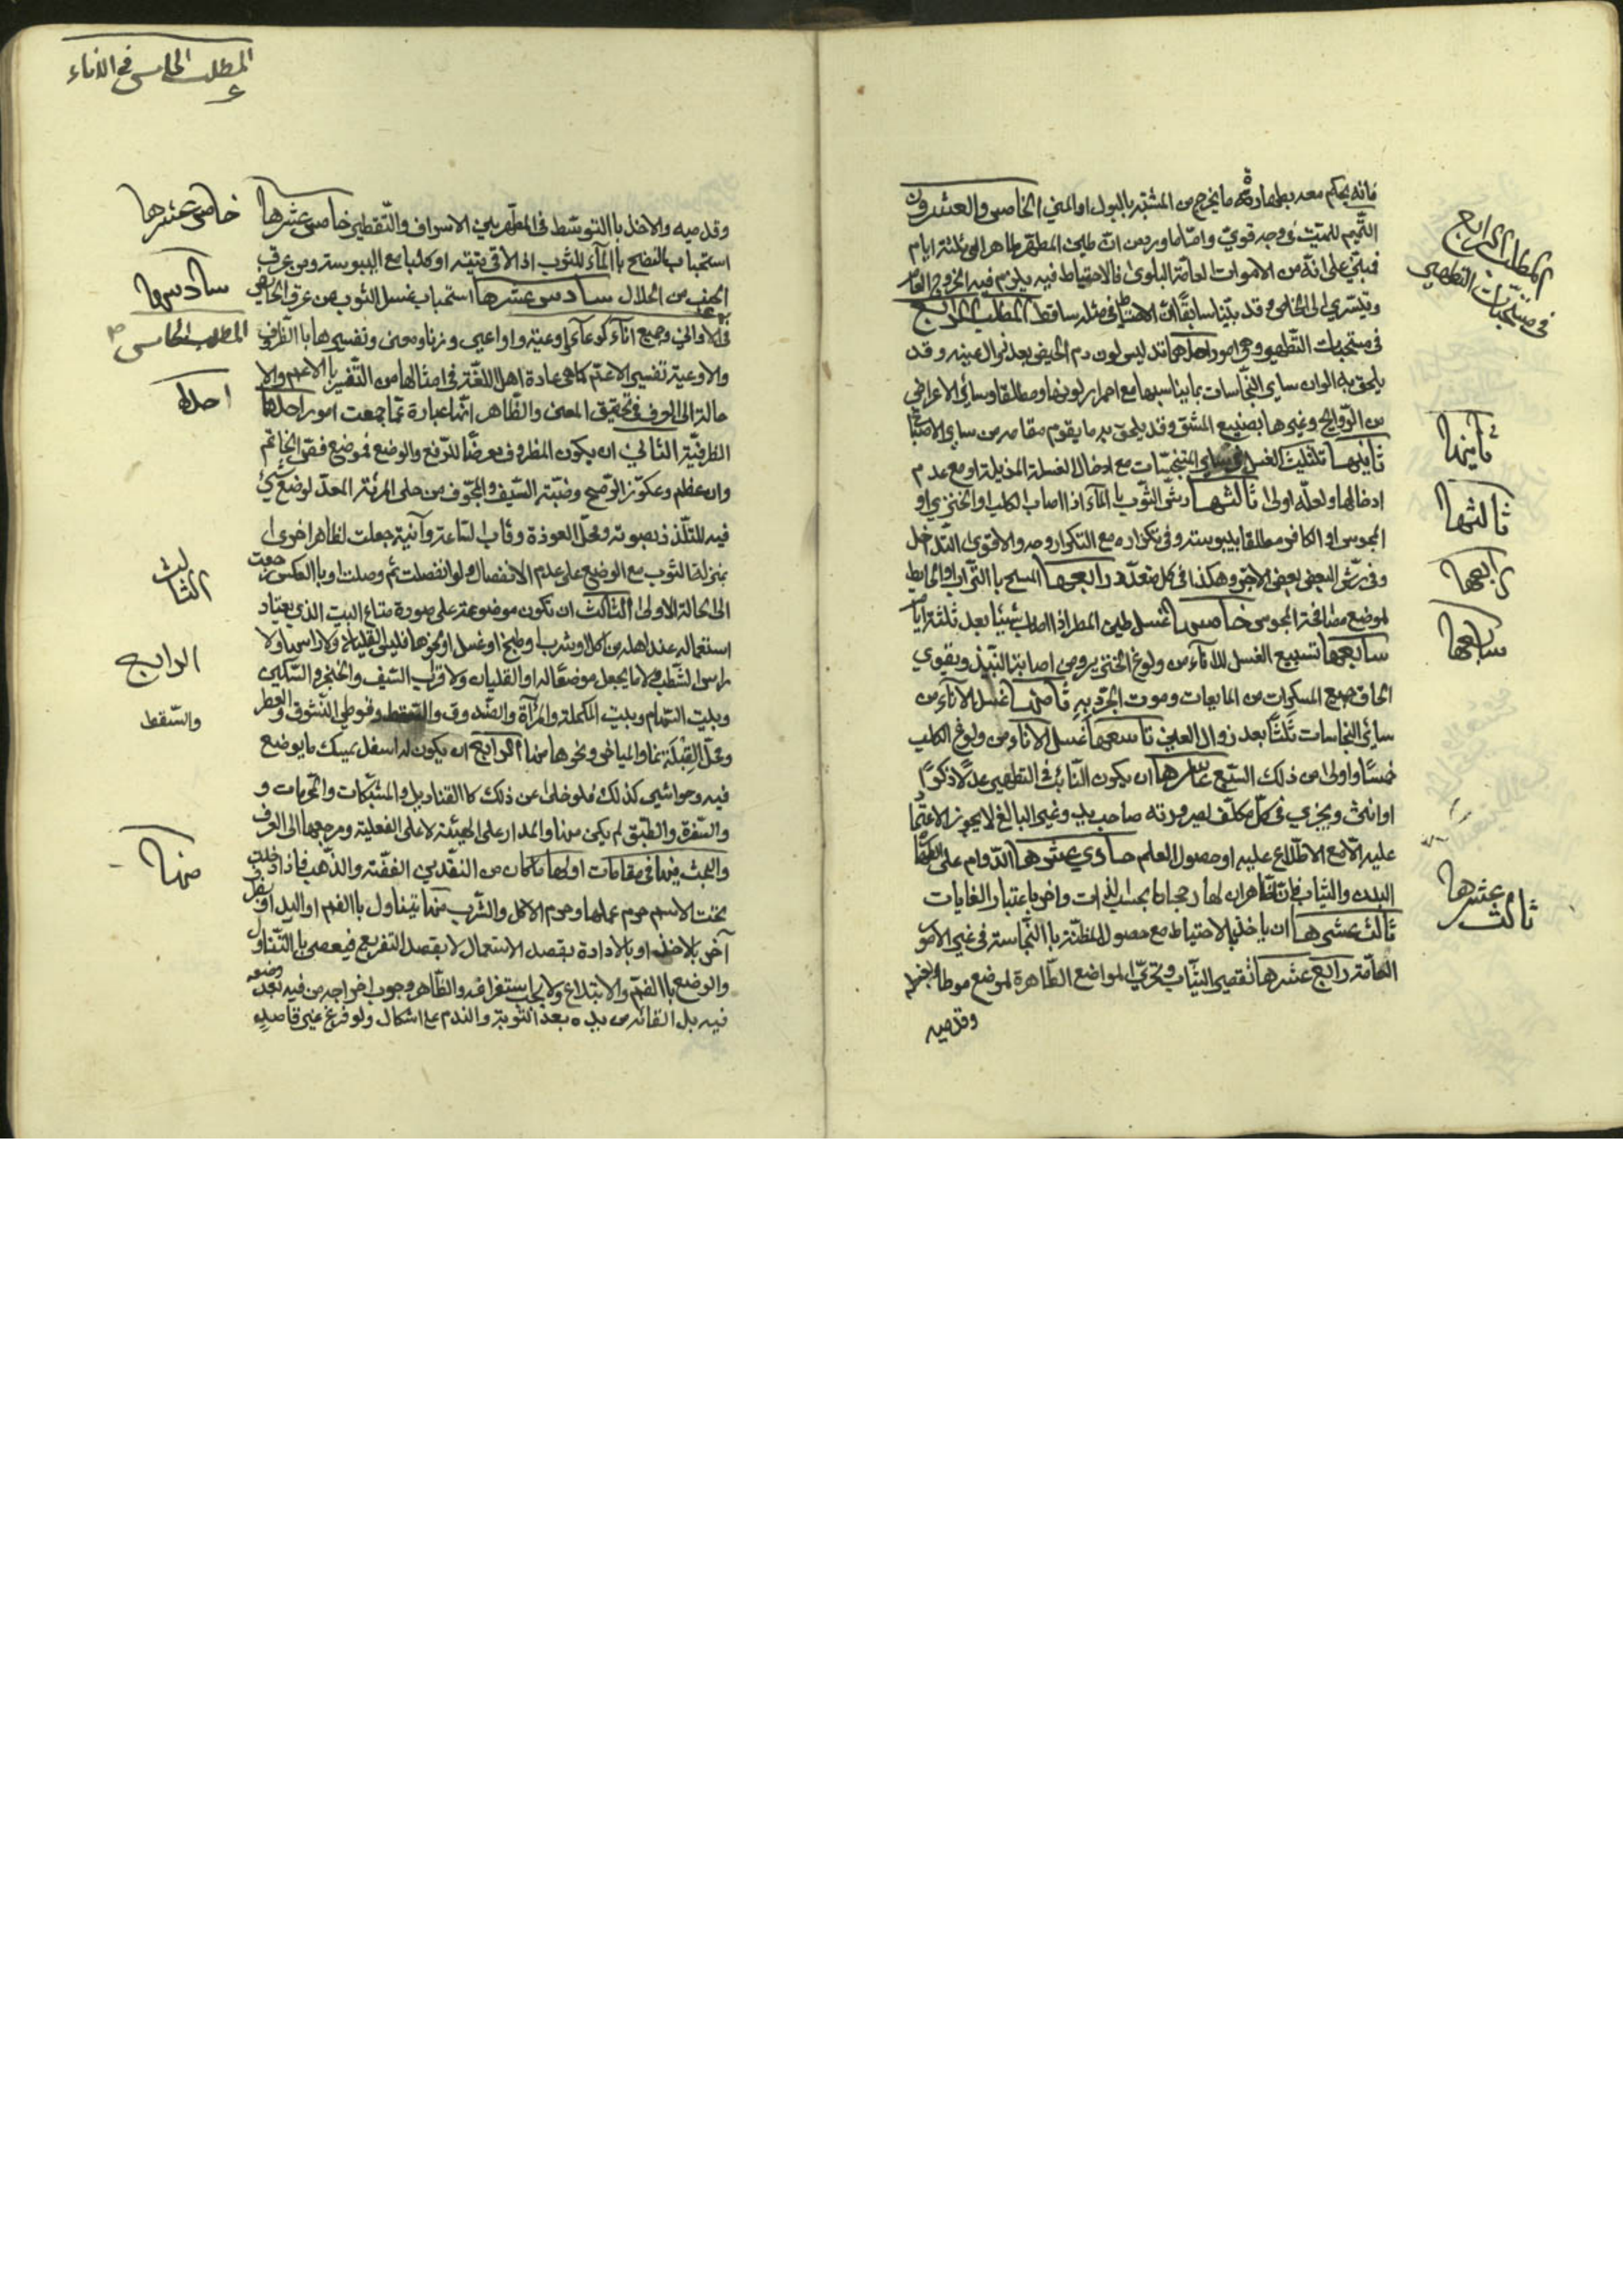 فانه يحكم معه بطهارة ما يخرج من المشتبه بالبول او المني الخامس والعشرون
التيمم للميت في وجه قوي واما ما ورد من ان طين المطر طاهر الى ثلثة ايام
فمبني على انه من الاموات لعامة البلوى فالاحتياط فيه يلزم فيه الخروج
ويسري الى الخاص وقد بينا سابقا ان الاحتياط في مثله ساقط المطلب الرابع
في مستحبات التطهير وهي امور احدها تدليس لون دم الحيض بعد زوال عينه وقد
يلحق به الوان ساير النجاسات بما يناسبها مع احمرار لونها ومطلقا وساير الاعراض
من الروايح وغيرها بصبغ المشق وقد يلحق به ما يقوم مقامه من ساير الاصباغ
ثانيها تثليث الغسل في ساير المتنجسات مع ادخال الغسلة المزيلة او مع عدم
ادخالها ولعله اولى ثالثها رش الثوب بالمآء اذا اصاب الكلب او الخنزير او
المجوسي او الكافر مطلقا بيبوسته وفي تكراره مع التكرار وجه والاقوى التداخل
وفي رش البعض بعض الاجر وهكذا في كل متعدد رابعها المسح بالتراب او الحايط
لموضع مصافحة المجوسي خامسها غسل طين المطر اذا اصاب شيئا بعد ثلثة ايام
سابعها تسبيع الغسل للانآء من ولوغ الخنزير ومن اصابة النبيذ ويقوى
الحاق جميع المسكرات من المايعات وموت الجرذ به ثامنها غسل الانآء من
سائر النجاسات ثلثا بعد زوال العين تاسعها غسل الاناء من ولوغ الكلب
خمسا واولى من ذلك السبع عاشرها ان يكون النائب في التطهير عدلا ذكرا
او انثى ويجزي في كل مكلف لصيرورته صاحب يد وغير البالغ لا يجوز الاعتماد
عليه الا مع الاطلاع عليه او حصول العلم حادي عشرها الدوام على طهارة
البدن والثياب فان الظاهر ان لها رجحانا بحسب الذات واخر باعتبار الغايات
ثالث عشرها ان ياخذ بالاحتياط مع حصول المظنة بالنجاسة في غير الامور
العامة رابع عشرها تقصير الثياب وتحري المواضع الطاهرة لموضع
وقدميه
المطلب الرابع
في مستحبات التطهير
ثانيها
ثالثها
رابعها
سابعها
ثالث عشرها
المطلب الخامس في الاناء
وقدميه والاخذ بالتوسط في المطهر بين الاسراف والتقطير خامس عشرها
استحباب النضح بالمآء للثوب اذا لاقى ميتة او كلبا مع اليبوسة ومن عرق
الجنب من الحلال سادس عشرها استحباب غسل الثوب من عرق الحائض
في الاواني وجميع انآء كوعآء واوعية واواعي وزنا ومعنى وتفسيرها بالظروف
والاوعية تفسير الاعم كما هي عادة اهل اللغة في امثالها من التفسير بالاعم والا
حالة الى العرف في تحقيق المعنى والظاهر انها عبارة عما جمعت امور احدها
الظرفية الثاني ان يكون المظروف معرضا للرفع والوضع فموضع فص الخاتم
وان عظم وعكوز الرمح وضبة السيف والمجوف من حلى المرئة المعد لوضع شئ
فيه للتلذذ بصوته ومحل العوذة وقاب الساعة وآنية جعلت لظاهر اخرى
بمنزلة الثوب مع الوضع على عدم الانفصال ولو انفصلت ثم وصلت او بالعكس رجعت
الى الحالة الاولى الثالث ان تكون موضوعة على صورة متاع البيت الذي يعتاد
استعماله عند اهله من اكل او شرب او طبخ او غسل او نحوها فليس القليان ولا راسها ولا
راس الشطب ولا ما يجعل موضعا له او القليان ولا قراب السيف والخنجر والسكين
وبيت السهام وبيت المكحلة والمرآة والصندوق والسقط وقوطي النشوق والعطر
ومحل القبلة نما والمياض ونحوها منها الرابع ان يكون له اسفل يمسك ما يوضع
فيه وحواشي كذلك فلو خلى عن ذلك كالقناديل والمشبكات والمخرمات و
والسفرة والطبق لم يكن منها والمدار على الهيئة لا على الفعلية ومرجعها الى العرف
والبحث فيها في مقامات اولها ما كان من النقدين الفضة والذهب فاذا دخلت
تحت الاسم حرم عملها وحرم الاكل والشرب منها بتناول بالفم او اليد او بنقل
آخر بلا خلاف او بالارادة بقصد الاستعمال لا بقصد التفريغ فيعصي بالتناول
والوضع بالفم والابتلاع ولا يجب استفراغه والظاهر وجوب اخراجه من فيه بعد وضعه
فيه بل القائه من يده بعد التوبة والندم على اشكال ولو فرغ غير قاصد
خامس عشرها
سادسها
المطلب الخامس
احدها
الثالث
الرابع
والسقط
منها